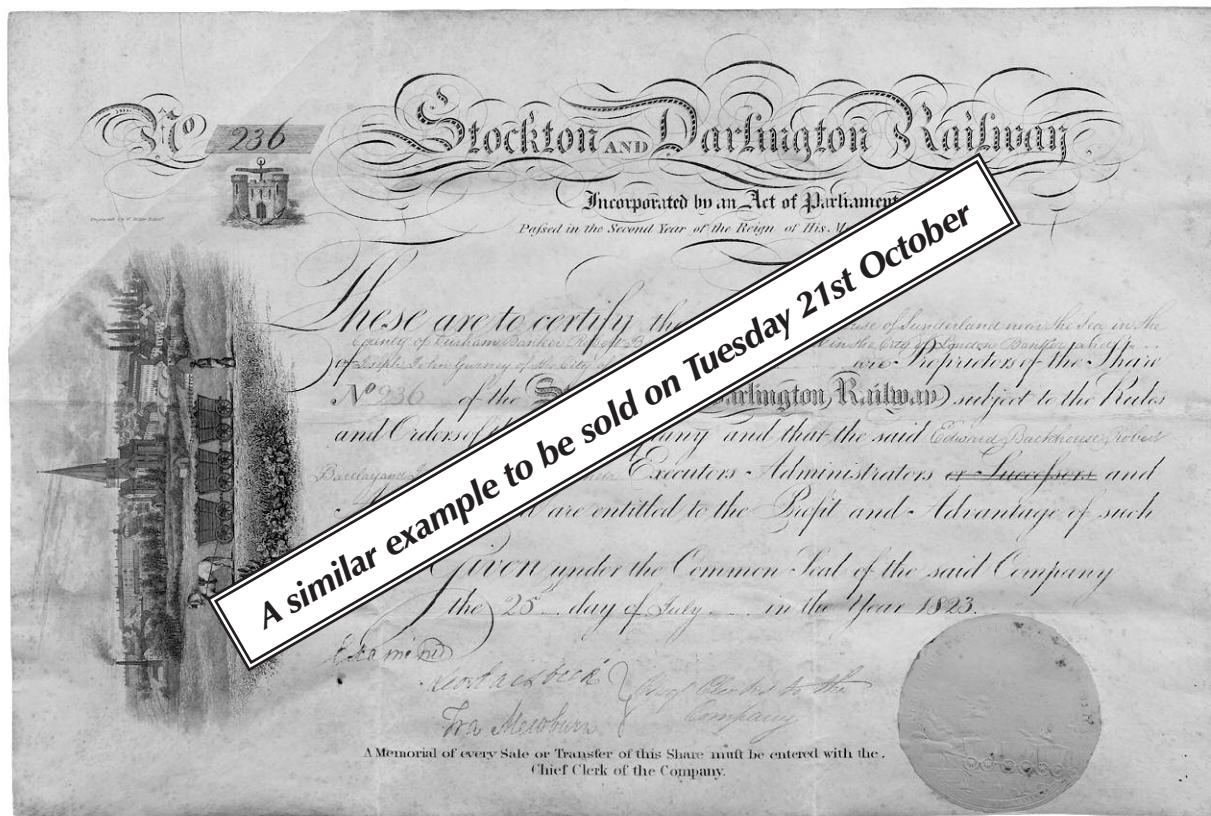 No 236 Stockton AND Darlington Railway
Incorporated by an Act of Parliament
Passed in the Second Year of the Reign of His M
These are to certify tha rse of Sunderland near the Sea in the
County of Durham Banker Robert B in the City of London Banker
of Joseph John Gurney of the City of are Proprietors of the Share
No 236 of the S Darlington Railway subject to the Rules
and Orders of pany and that the said Edward Backhouse, Robert
Barclay and Executors Administrators or Successors and
are entitled to the Profit and Advantage of such
Given under the Common Seal of the said Company
the 25 day of July in the Year 1823.
Examined
Fra Mewburn
Company
A Memorial of every Sale or Transfer of this Share must be entered with the
Chief Clerk of the Company.
A similar example to be sold on Tuesday 21st October